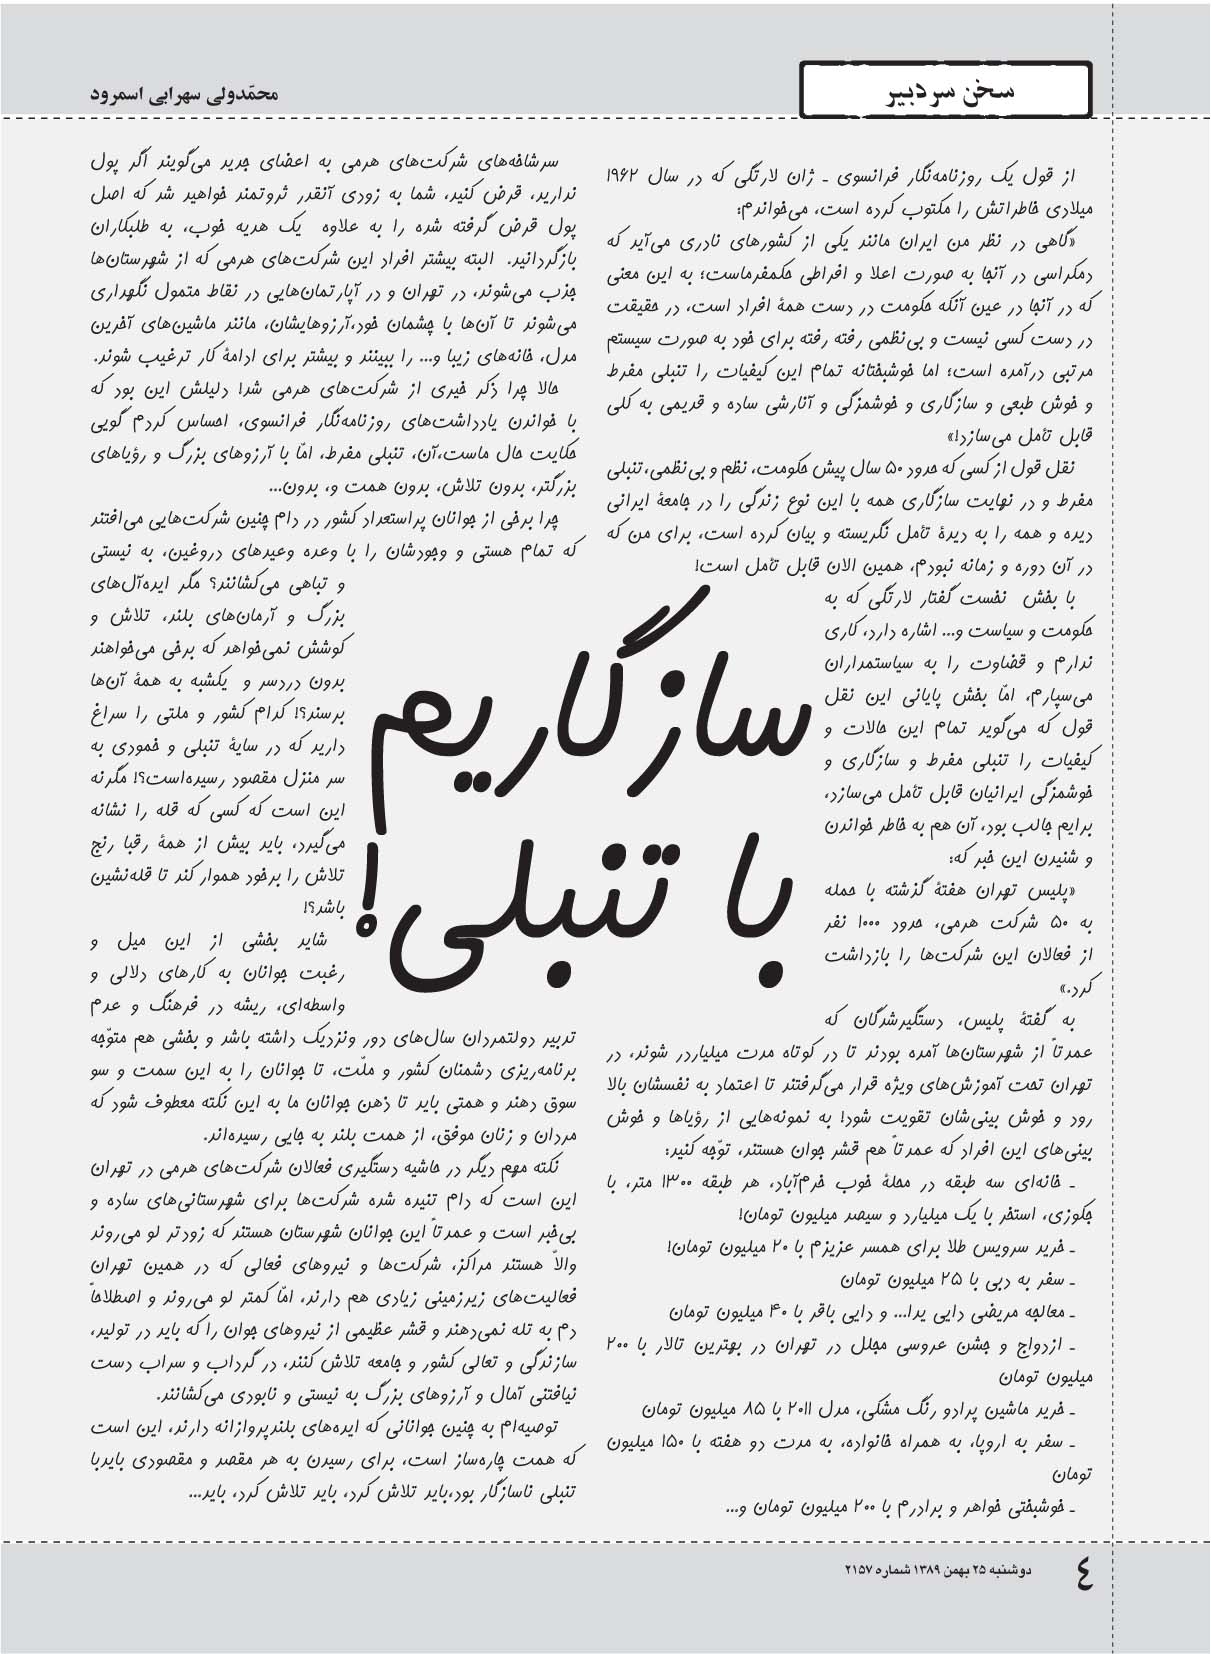 سخن سردبیر
محمّدولی سهرابی اسمرود
سازگاریم
با تنبلی!
از قول یک روزنامه‌نگار فرانسوی ـ ژان لارتگی که در سال ۱۹۶۲
میلادی خاطراتش را مکتوب کرده است، می‌خواندم:
«گاهی در نظر من ایران مانند یکی از کشورهای نادری می‌آید که
دمکراسی در آنجا به صورت اعلا و افراطی حکمفرماست؛ به این معنی
که در آنجا در عین آنکه حکومت در دست همهٔ افراد است، در حقیقت
در دست کسی نیست و بی‌نظمی رفته رفته برای خود به صورت سیستم
مرتبی درآمده است؛ اما خوشبختانه تمام این کیفیات را تنبلی مفرط
و خوش طبعی و سازگاری و خوشمزگی و آنارشی ساده و قدیمی به کلی
قابل تأمل می‌سازد!»
نقل قول از کسی که حدود ۵۰ سال پیش حکومت، نظم و بی‌نظمی،تنبلی
مفرط و در نهایت سازگاری همه با این نوع زندگی را در جامعهٔ ایرانی
دیده و همه را به دیدهٔ تأمل نگریسته و بیان کرده است، برای من که
در آن دوره و زمانه نبودم، همین الان قابل تأمل است!
با بخش نخست گفتار لارتگی که به
حکومت و سیاست و... اشاره دارد، کاری
ندارم و قضاوت را به سیاستمداران
می‌سپارم، امّا بخش پایانی این نقل
قول که می‌گوید تمام این حالات و
کیفیات را تنبلی مفرط و سازگاری و
خوشمزگی ایرانیان قابل تأمل می‌سازد،
برایم جالب بود، آن هم به خاطر خواندن
و شنیدن این خبر که:
«پلیس تهران هفتهٔ گذشته با حمله
به ۵۰ شرکت هرمی، حدود ۱۰۰۰ نفر
از فعالان این شرکت‌ها را بازداشت
کرد.»
به گفتهٔ پلیس، دستگیرشدگان که
عمدتاً از شهرستان‌ها آمده بودند تا در کوتاه مدت میلیاردر شوند، در
تهران تحت آموزش‌های ویژه قرار می‌گرفتند تا اعتماد به نفسشان بالا
رود و خوش بینی‌شان تقویت شود! به نمونه‌هایی از رؤیاها و خوش
بینی‌های این افراد که عمدتاً هم قشر جوان هستند، توّجه کنید:
ـ خانه‌ای سه طبقه در محلهٔ خوب خرم‌آباد، هر طبقه ۱۳۰۰ متر، با
جکوزی، استخر با یک میلیارد و سیصد میلیون تومان!
ـ خرید سرویس طلا برای همسر عزیزم با ۲۰ میلیون تومان!
ـ سفر به دبی با ۲۵ میلیون تومان
ـ معالجه مریضی دایی یدا... و دایی باقر با ۴۰ میلیون تومان
ـ ازدواج و جشن عروسی مجلل در تهران در بهترین تالار با ۲۰۰
میلیون تومان
ـ خرید ماشین پرادو رنگ مشکی، مدل ۲۰۱۱ با ۸۵ میلیون تومان
ـ سفر به اروپا، به همراه خانواده، به مدت دو هفته با ۱۵۰ میلیون
تومان
ـ خوشبختی خواهر و برادرم با ۲۰۰ میلیون تومان و...
سرشاخه‌های شرکت‌های هرمی به اعضای جدید می‌گویند اگر پول
ندارید، قرض کنید، شما به زودی آنقدر ثروتمند خواهید شد که اصل
پول قرض گرفته شده را به علاوه یک هدیه خوب، به طلبکاران
بازگردانید. البته بیشتر افراد این شرکت‌های هرمی که از شهرستان‌ها
جذب می‌شوند، در تهران و در آپارتمان‌هایی در نقاط متمول نگهداری
می‌شوند تا آن‌ها با چشمان خود،آرزوهایشان، مانند ماشین‌های آخرین
مدل، خانه‌های زیبا و... را ببینند و بیشتر برای ادامهٔ کار ترغیب شوند.
حالا چرا ذکر خیری از شرکت‌های هرمی شد! دلیلش این بود که
با خواندن یادداشت‌های روزنامه‌نگار فرانسوی، احساس کردم گویی
حکایت حال ماست،آن، تنبلی مفرط، امّا با آرزوهای بزرگ و رؤیاهای
بزرگتر، بدون تلاش، بدون همت و، بدون...
چرا برخی از جوانان پراستعداد کشور در دام چنین شرکت‌هایی می‌افتند
که تمام هستی و وجودشان را با وعده وعیدهای دروغین، به نیستی
و تباهی می‌کشانند؟ مگر ایده‌آل‌های
بزرگ و آرمان‌های بلند، تلاش و
کوشش نمی‌خواهد که برخی می‌خواهند
بدون دردسر و یکشبه به همهٔ آن‌ها
برسند؟! کدام کشور و ملتی را سراغ
دارید که در سایهٔ تنبلی و خمودی به
سر منزل مقصود رسیده‌است؟! مگرنه
این است که کسی که قله را نشانه
می‌گیرد، باید بیش از همهٔ رقبا رنج
تلاش را برخود هموار کند تا قله‌نشین
باشد؟!
شاید بخشی از این میل و
رغبت جوانان به کارهای دلالی و
واسطه‌ای، ریشه در فرهنگ و عدم
تدبیر دولتمردان سال‌های دور ونزدیک داشته باشد و بخشی هم متوّجه
برنامه‌ریزی دشمنان کشور و ملّت، تا جوانان را به این سمت و سو
سوق دهند و همتی باید تا ذهن جوانان ما به این نکته معطوف شود که
مردان و زنان موفق، از همت بلند به جایی رسیده‌اند.
نکته مهم دیگر در حاشیه دستگیری فعالان شرکت‌های هرمی در تهران
این است که دام تنیده شده شرکت‌ها برای شهرستانی‌های ساده و
بی‌خبر است و عمدتاً این جوانان شهرستان هستند که زودتر لو می‌روند
والاّ هستند مراکز، شرکت‌ها و نیروهای فعالی که در همین تهران
فعالیت‌های زیرزمینی زیادی هم دارند، امّا کمتر لو می‌روند و اصطلاحاً
دم به تله نمی‌دهند و قشر عظیمی از نیروهای جوان را که باید در تولید،
سازندگی و تعالی کشور و جامعه تلاش کنند، در گرداب و سراب دست
نیافتنی آمال و آرزوهای بزرگ به نیستی و نابودی می‌کشانند.
توصیه‌ام به چنین جوانانی که ایده‌های بلندپروازانه دارند، این است
که همت چاره‌ساز است، برای رسیدن به هر مقصد و مقصودی بایدبا
تنبلی ناسازگار بود،باید تلاش کرد، باید تلاش کرد، باید...
٤
دوشنبه ۲۵ بهمن ۱۳۸۹ شماره ۲۱۵۷